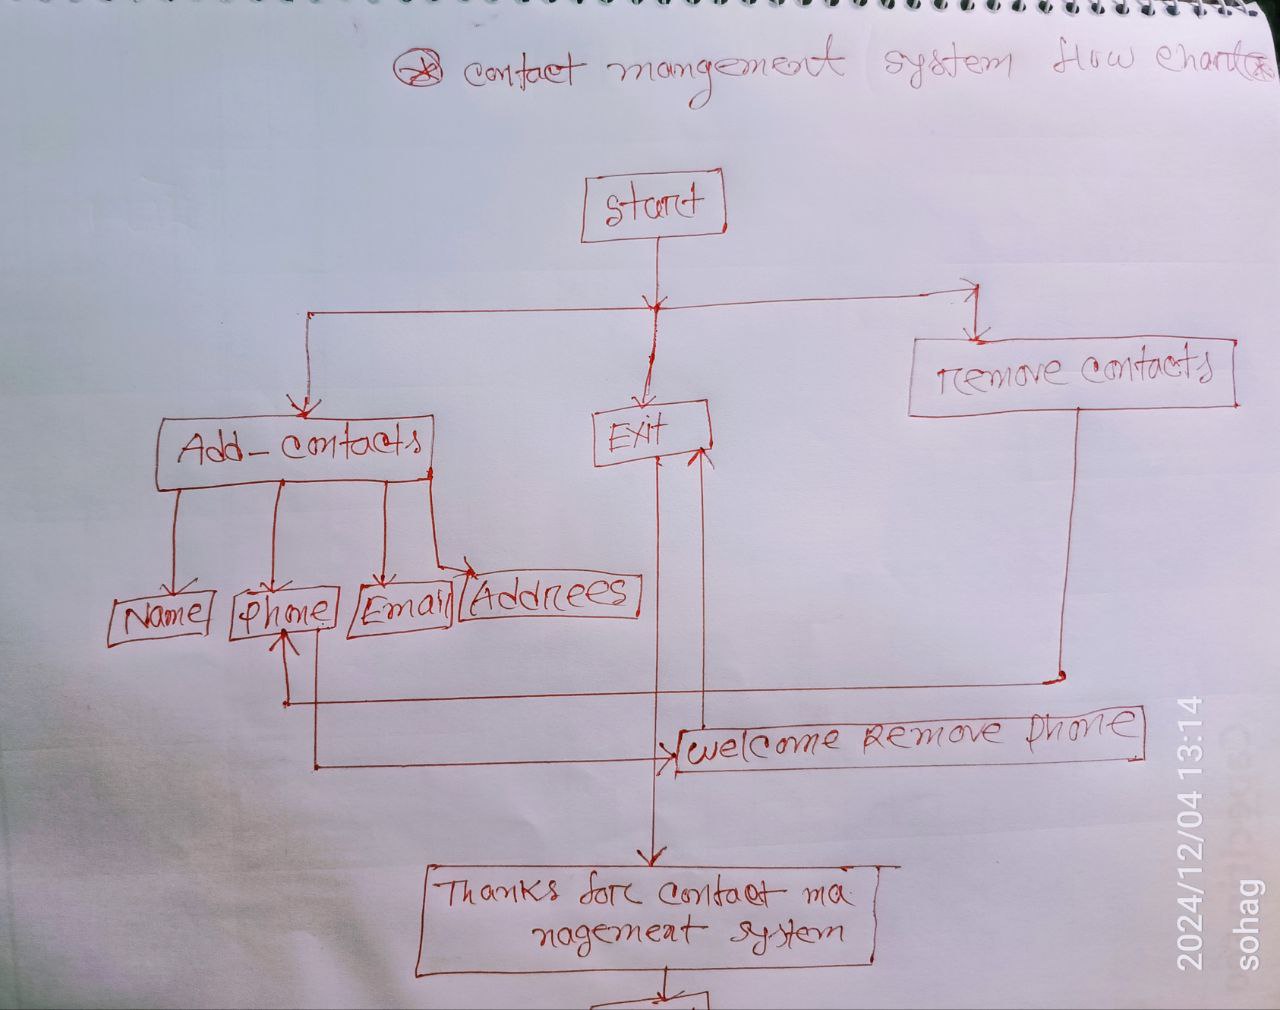 contact mangement system flow chart
Start
Remove contacts
Add-contacts
Exit
Name
Phone
Email
Addrees
Welcome Remove Phone
Thanks for contact ma
nagement system
2024/12/04 13:14
sohag